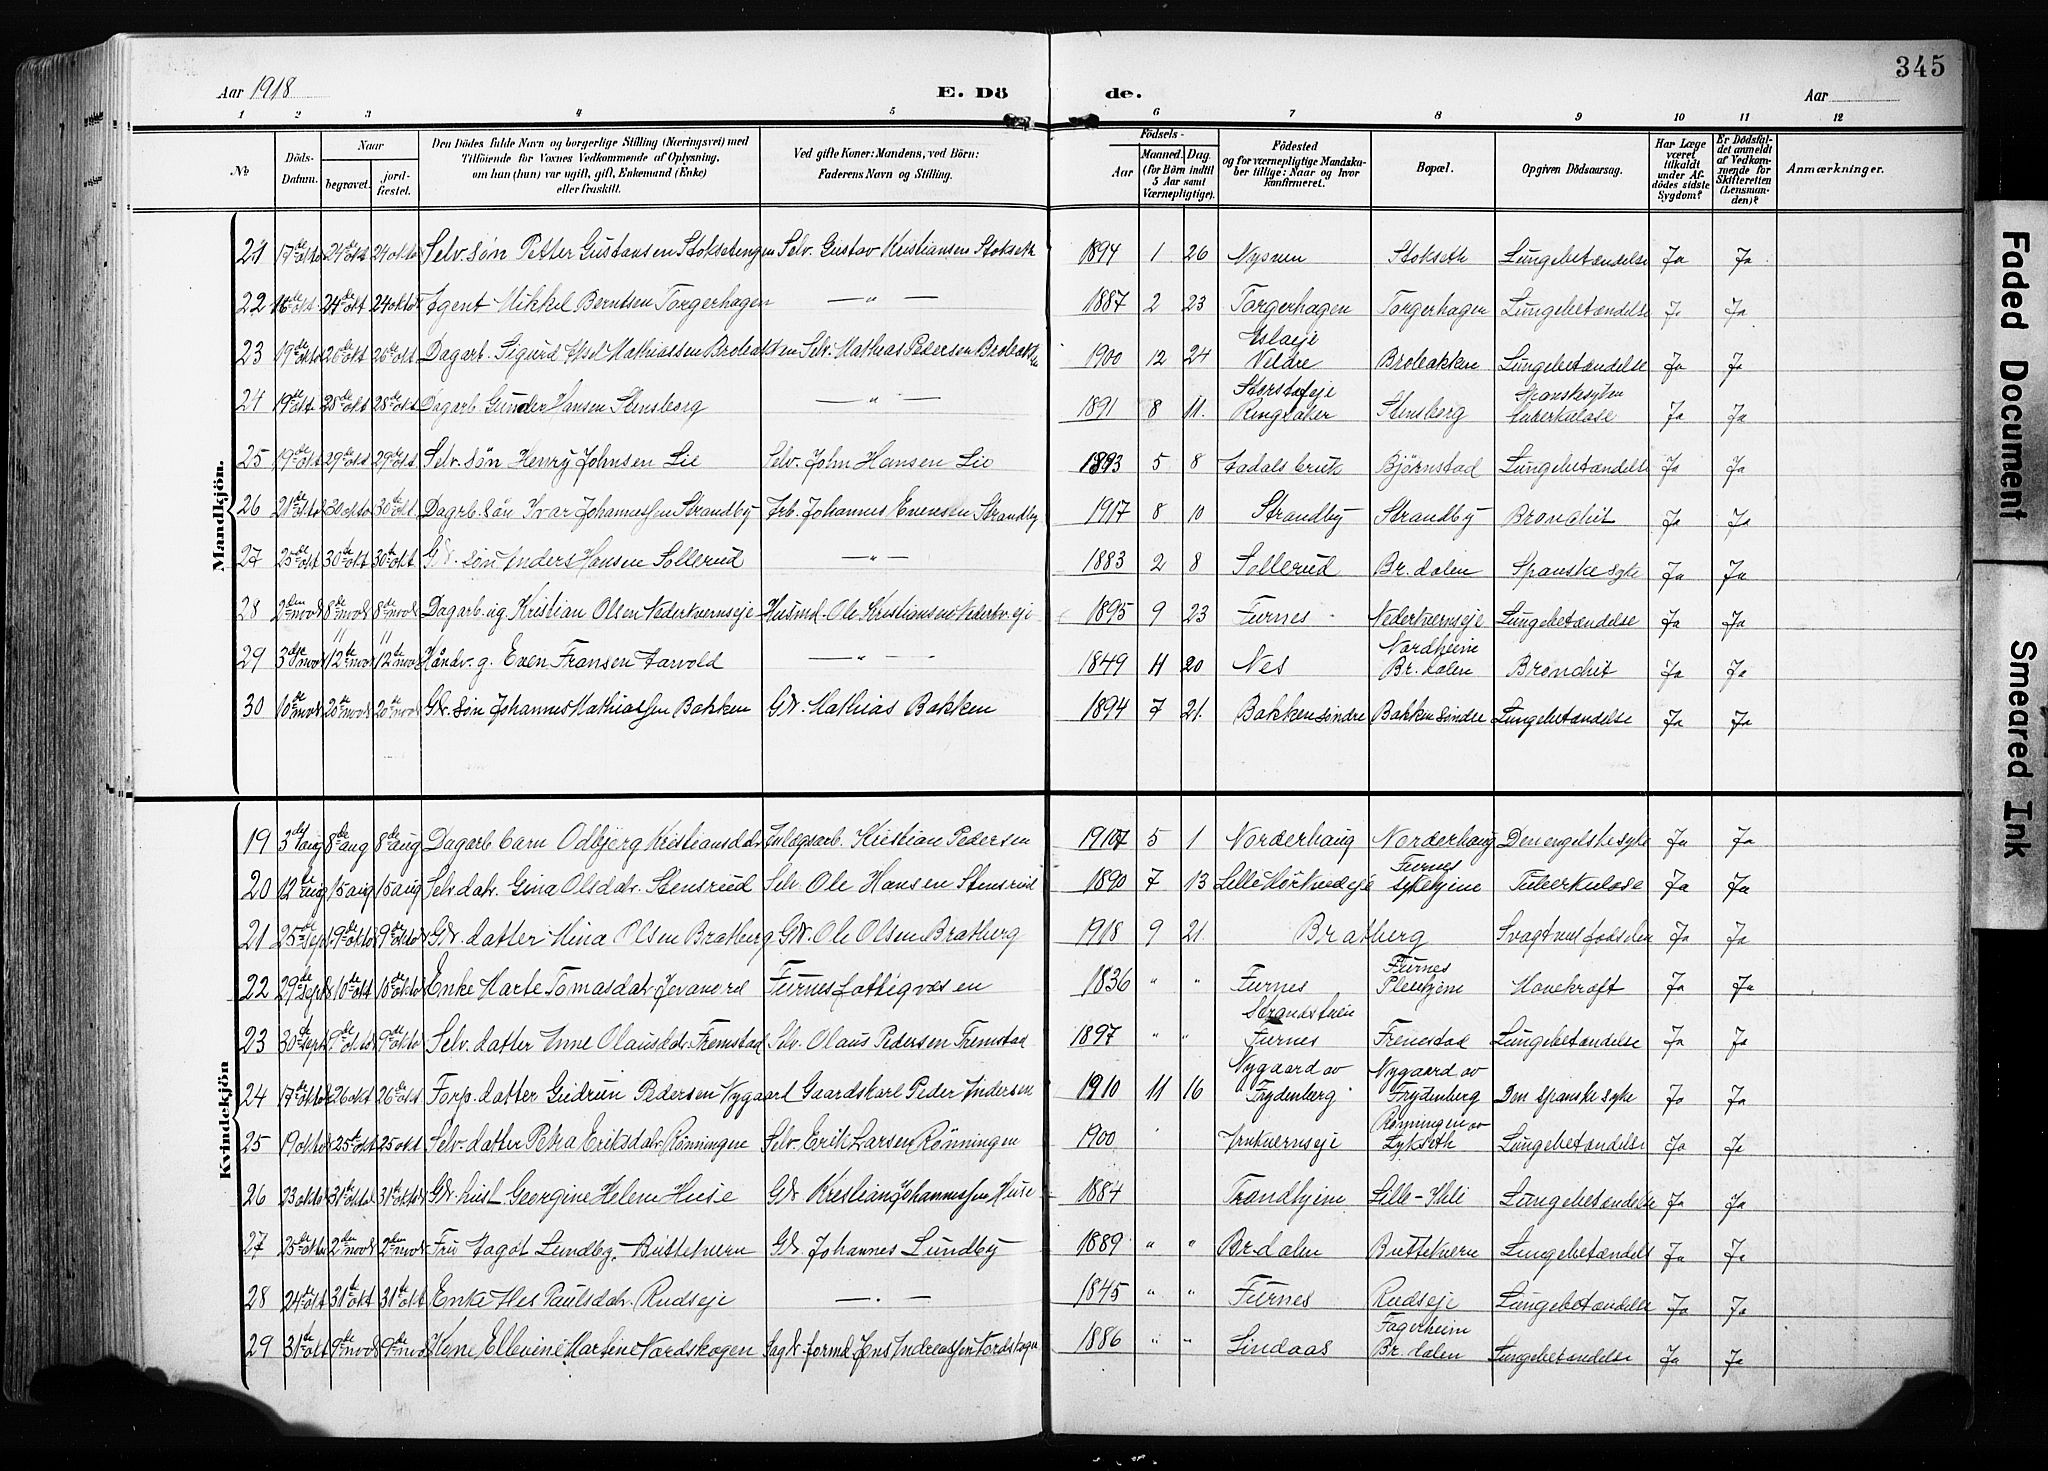 345
Aar 1918
E. Dö de.
Aar
1 2 3 4 5 6 7 8 9 10 11 12
No
Döds-Datum.
Naar
begravet.
jordfæstet.
Den Dödes fulde Navn og borgerlige Stilling (Næringsvei) med Tilföiende for Voxnes Vedkommende af Oplysning, om han (hun) var ugift, gift, Enkemand (Enke) eller fraskilt.
Ved gifte Koner: Mandens, ved Börn: Faderens Navn og Stilling.
Födsels-
Aar
Maaned. Dag (for Börn indtil 5 Aar samt Værnepligtige).
Födested og for værnepligtige Mandskaber tillige: Naar og hvor konfirmeret.
Bopæl.
Opgiven Dödsaarsag.
Har Læge været tilkaldt under Afdödes sidste Sygdom?
Er Dödsfaldet anmeldt af Vedkommende for Skifteretten (Lensmanden)?
Anmærkninger.
Mandkjön.
21 17de okto 24de okt 24 okto Selv. søn Petter Gustavsen Stoksetengen Selv. Gustav Kristiansen Stokseth 1894 1 26 Nysven Stokseth Lungebetændelse Ja Ja
22 16de okt 24de okt 24 okto Agent Mikkel Berntsen Torgerhagen — " — 1887 2 23 Torgerhagen Torgerhagen Lungebetændelse Ja Ja
23 19de okto 26de okt 26de okt Dagarb. Sigurd Mathiassen Brobakken Selv. Mathias Pedersen Brobakken 1900 12 24 Veldre Brobakken Lungebetændelse Ja Ja
24 19de okt 28de okt 28de okt Dagarb. Gunder Hansen Stensborg — " — 1891 8 11. Ringsaker Stensberg Spanskesyken Tuberkulose Ja Ja
25 19de okt 29de okt 29de okt Selv. søn Henry Johnsen Lie Selv. John Hansen Lie 1893 5 8 Aadalsbruk Bjørnstad Lungebetændelse Ja Ja
26 21de okto 30 okto 30te okt Dagrb. søn Ivar Johannessen Strandby Arb. Johannes Evensen Strandby 1917 8 10 Strandby Strandby Bronchit Ja Ja
27 25de okt 30te okt 30te okt Gdr. søn Anders Hansen Sollerud — " — 1883 2 8 Sollerud Br. dalen Spanske syke Ja Ja
28 2den novbr 8de novbr 8de novbr Dagarb. ug Kristian Olsen Nederkvernseje Husmd. Ole Kristiansen Nederkv.eje 1895 9 23 Furnes Nederkvernseje Lungebetændelse Ja Ja
29 3dje nov 12te nov 12te nov Håndv. g. Even Fransen Aarvold — " — 1849 11 20 Nes Nordheim Br. dalen Bronchit Ja Ja
30 10de novbr 20de novbr 20de novbr Gdr. søn Johannes Mathiassen Bakken Gdr. Mathias Bakken 1894 7 21. Bakken søndre Bakken søndre Lungebetændelse Ja Ja
Kvindekjön
19 3dje aug 8de aug 8de aug Dagarb. barn Odbjørg Kristiansdr. Inlægsarb. Kristian Pedersen 1917 5 1 Norderhaug Norderhaug Den engelske syke Ja Ja
20 12te aug 15 aug 15 aug Selv. datr. Gina Olsdatr. Stensrud Selv. Ole Hansen Stensrud 1890 7 13 Furnes sykehjem Tuberkulose Ja Ja
21 25de sept 9de okto 9de okto Gdr. datter Mina Olsen Bratberg Gdr. Ole Olsen Bratberg 1918 9 21. Bratberg Svagt ved fødselen Ja Ja
22 29de sept 10de okt 10de okto Enke Marte Tomasdatr. Jevanord Furnes fattigvæsen 1836 " " Furnes Furnes Pleiehjem Mavekræft Ja Ja
23 30te sept 9de okto 9de okto Selv. datter Anne Olausdatr. Fremstad Selv. Olaus Pedersen Fremstad 1897 " " Furnes Fremstad Lungebetændelse Ja Ja
24 17de okto 26 okt 26de okt Forp. datter Gudrun Pedersen Nygaard Gaardskarl Peder Andersen 1910 11 16 Nygaard av Frydenberg Nygaard av Frydenberg Den spanske syke Ja Ja
25 19 okto 25te okt 25 okt Selv. datter Petra Eriksdatr. Rønningen Selv. Erik Larsen Rønningen 1900 Rønningen av Lykseth Lungebetændelse Ja Ja
26 23 okto 31te okto 31te okto Gdr. hust Georgine Helene Huse Gdr. Kristian Johannessen Huse 1884 Trondhjem Lille- Lungebetændelse Ja Ja
27 25de okto 2den novbr 2den novbr Fru Aagot Lundby, Buttekvern Gdr. Johannes Lundby 1889 " " Br. dalen Buttekvern Lungebetændelse Ja Ja
28 24de okt 31te okt 31te okt Enke Paulsdatr. Rudseje — . — 1845 " " Furnes Rudseje Lungebetændelse Ja Ja
29 31te okt 9de novbr 9de novbr Kone Ellevine Martine Nordskogen Sagbr. formd Jens Andreassen Nordskogen 1886 " " Lindaas Fagerheim Br. dalen Lungebetændelse Ja Ja
Faded Document
Smeared Ink